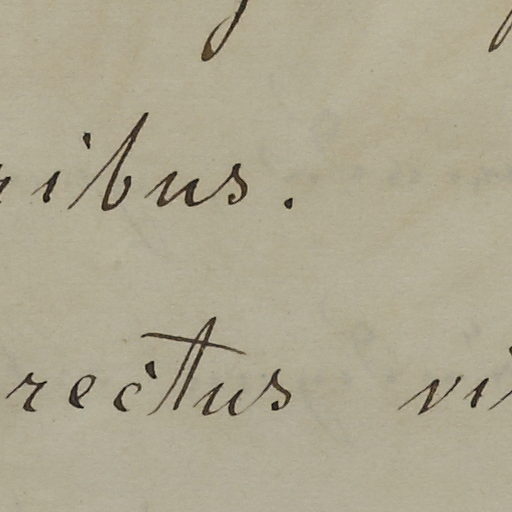 ribus.
rectus vi